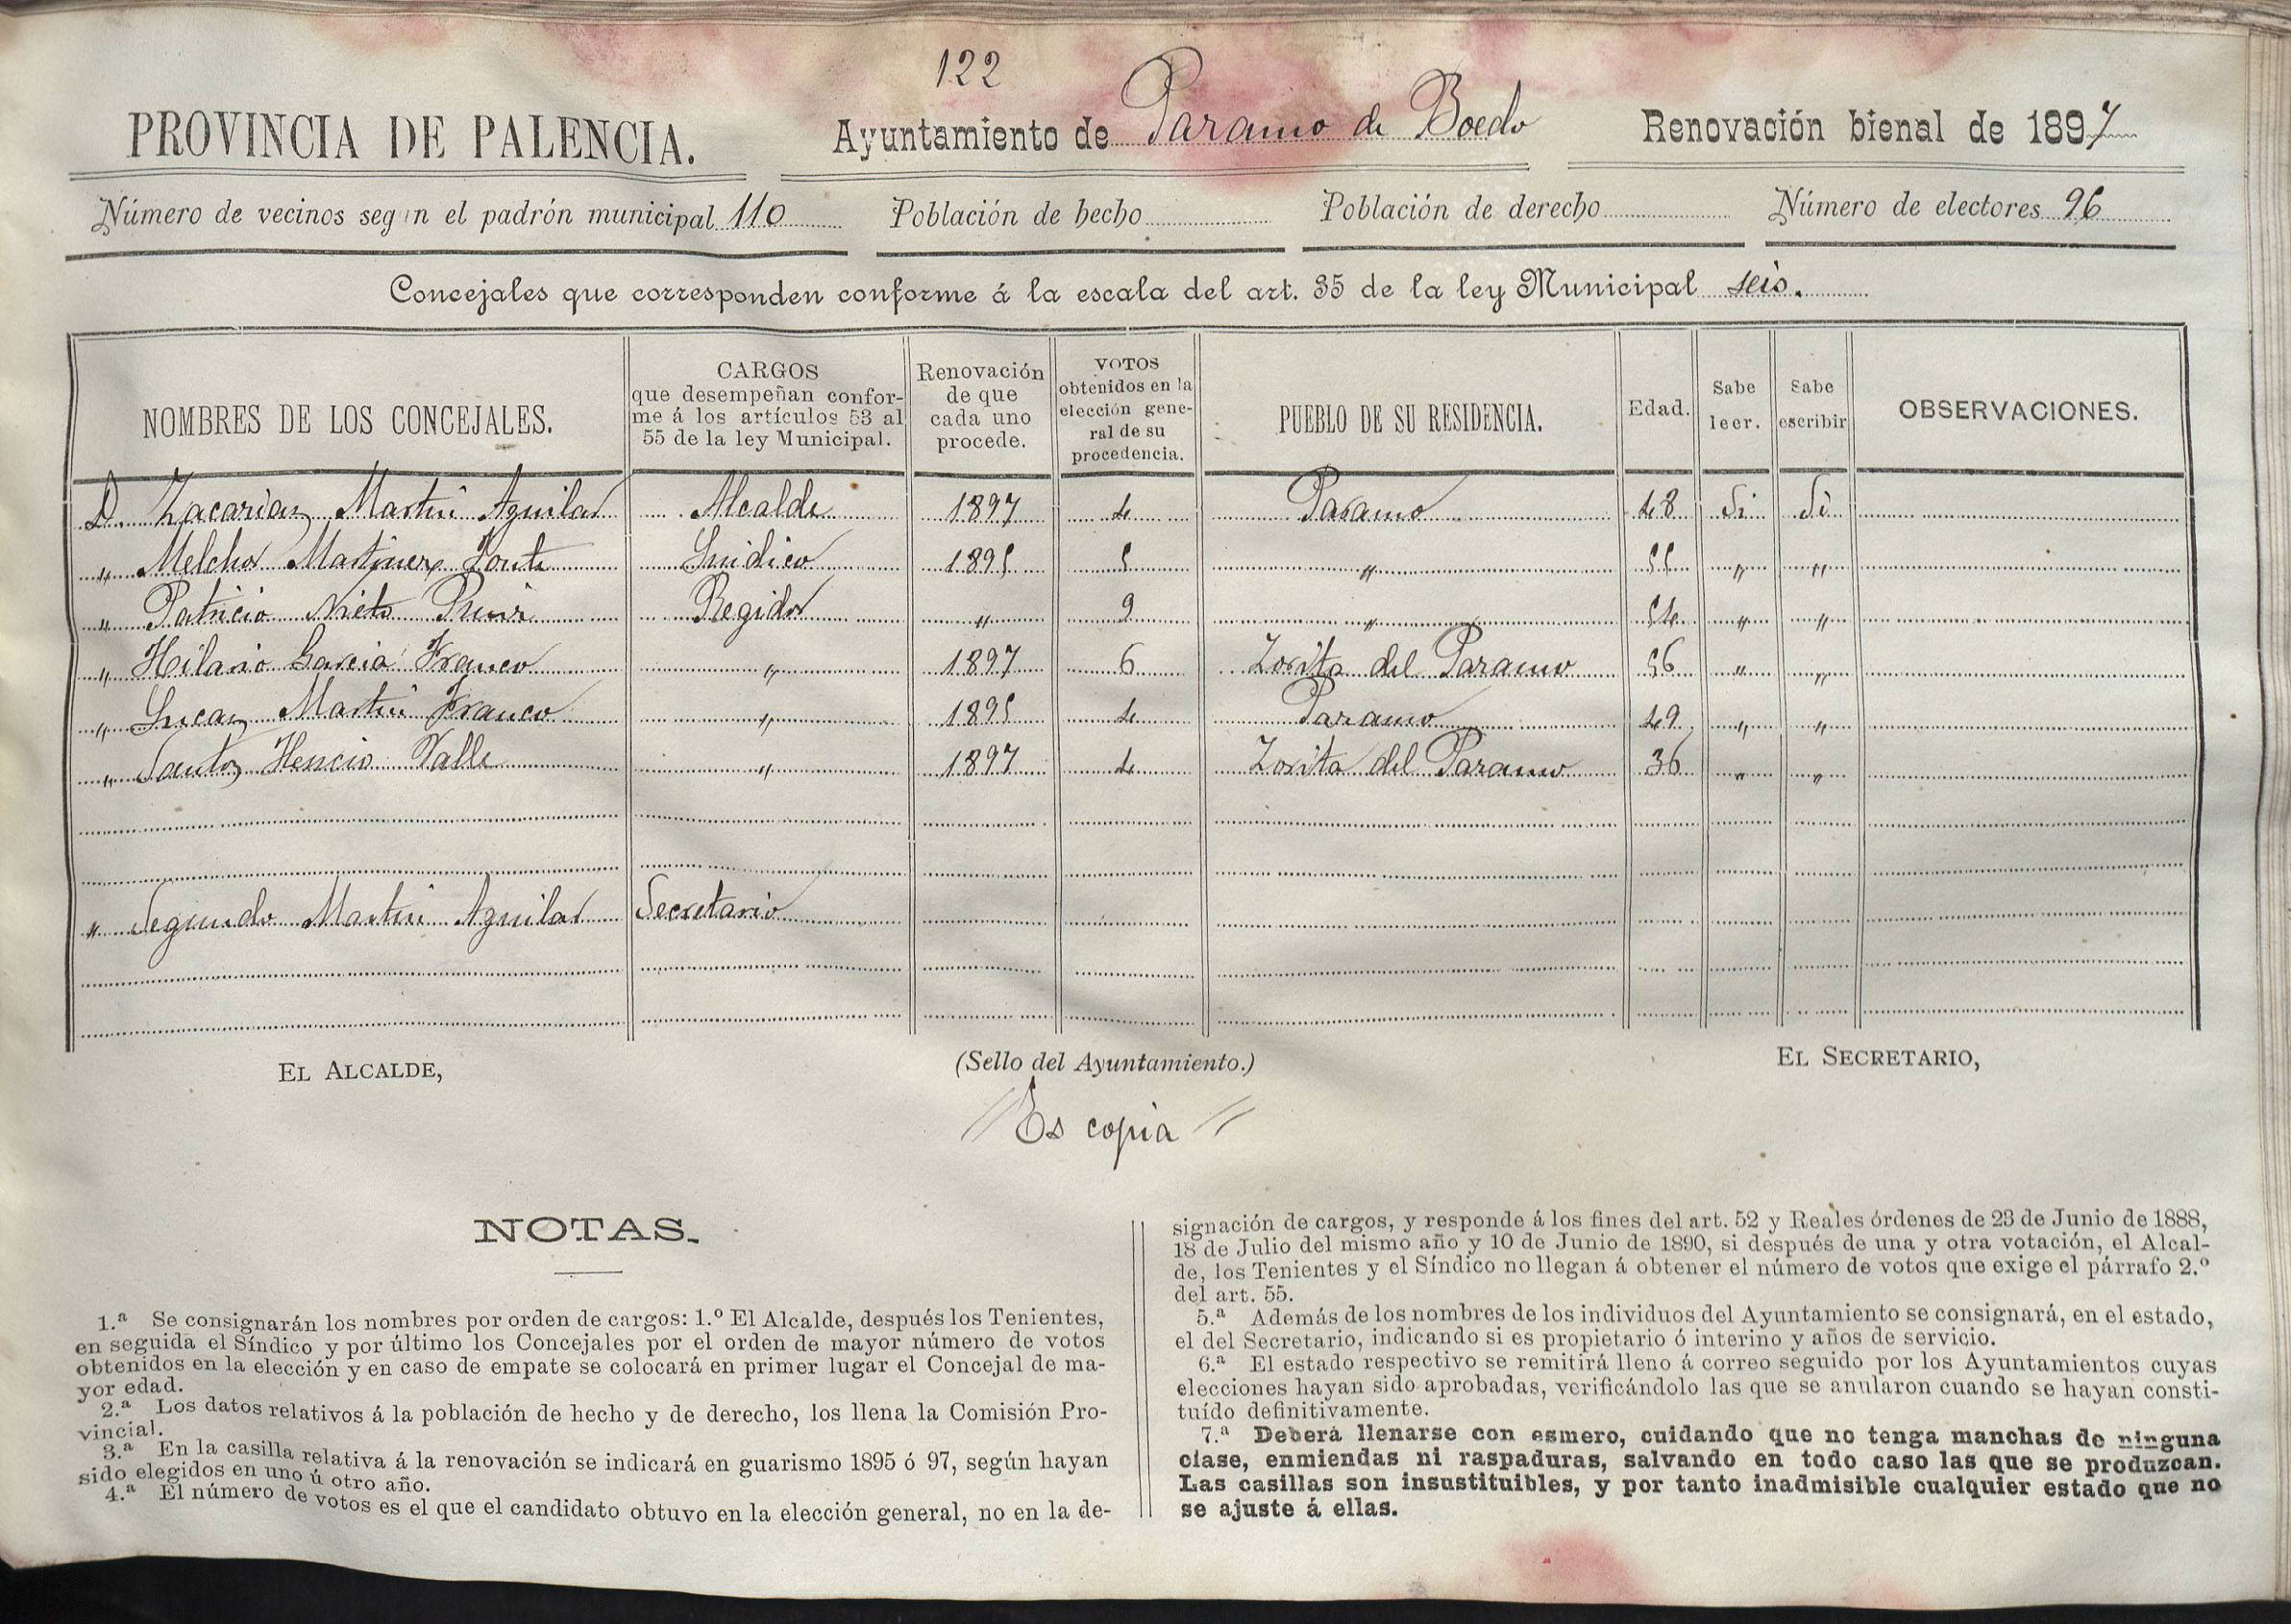 122
PROVINCIA DE PALENCIA. Ayuntamiento de Paramo de Boedo Renovación bienal de 1897
Número de vecinos según el padrón municipal 110 Población de hecho Población de derecho Número de electores 96
Concejales que corresponden conforme á la escala del art. 35 de la ley Municipal seis.
NOMBRES DE LOS CONCEJALES.
CARGOS
que desempeñan confor-
me á los artículos 53 al
55 de la ley Municipal.
Renovación
de que
cada uno
procede.
VOTOS
obtenidos en la
elección gene-
ral de su
procedencia.
PUEBLO DE SU RESIDENCIA.
Edad.
Sabe
leer.
Sabe
escribir
OBSERVACIONES.
D. Zacarias Martin Aguilar Alcalde 1897 4 Paramo 48 Si Si
" Melchor Martinez Sindico 1895 5 " 55 " "
" Patricio Nieto Regidor " 9 " 54 " "
" Hilario Garcia Franco " 1897 6 Zorita del Paramo 56 " "
" Lucas Martin Franco " 1895 4 Paramo 49 " "
" Santos Valle " 1897 4 Zorita del Paramo 36 " "
" Segundo Martin Aguilar Secretario
EL ALCALDE, (Sello del Ayuntamiento.) EL SECRETARIO,
Es copia
NOTAS.
1.ª Se consignarán los nombres por orden de cargos: 1.º El Alcalde, después los Tenientes,
en seguida el Síndico y por último los Concejales por el orden de mayor número de votos
obtenidos en la elección y en caso de empate se colocará en primer lugar el Concejal de ma-
yor edad.
2.ª Los datos relativos á la población de hecho y de derecho, los llena la Comisión Pro-
vincial.
3.ª En la casilla relativa á la renovación se indicará en guarismo 1895 ó 97, según hayan
sido elegidos en uno ú otro año.
4.ª El número de votos es el que el candidato obtuvo en la elección general, no en la de-
signación de cargos, y responde á los fines del art. 52 y Reales órdenes de 23 de Junio de 1888,
18 de Julio del mismo año y 10 de Junio de 1890, si después de una y otra votación, el Alcal-
de, los Tenientes y el Síndico no llegan á obtener el número de votos que exige el párrafo 2.º
del art. 55.
5.ª Además de los nombres de los individuos del Ayuntamiento se consignará, en el estado,
el del Secretario, indicando si es propietario ó interino y años de servicio.
6.ª El estado respectivo se remitirá lleno á correo seguido por los Ayuntamientos cuyas
elecciones hayan sido aprobadas, verificándolo las que se anularon cuando se hayan consti-
tuído definitivamente.
7.ª Deberá llenarse con esmero, cuidando que no tenga manchas de ninguna
clase, enmiendas ni raspaduras, salvando en todo caso las que se produzcan.
Las casillas son insustituibles, y por tanto inadmisible cualquier estado que no
se ajuste á ellas.